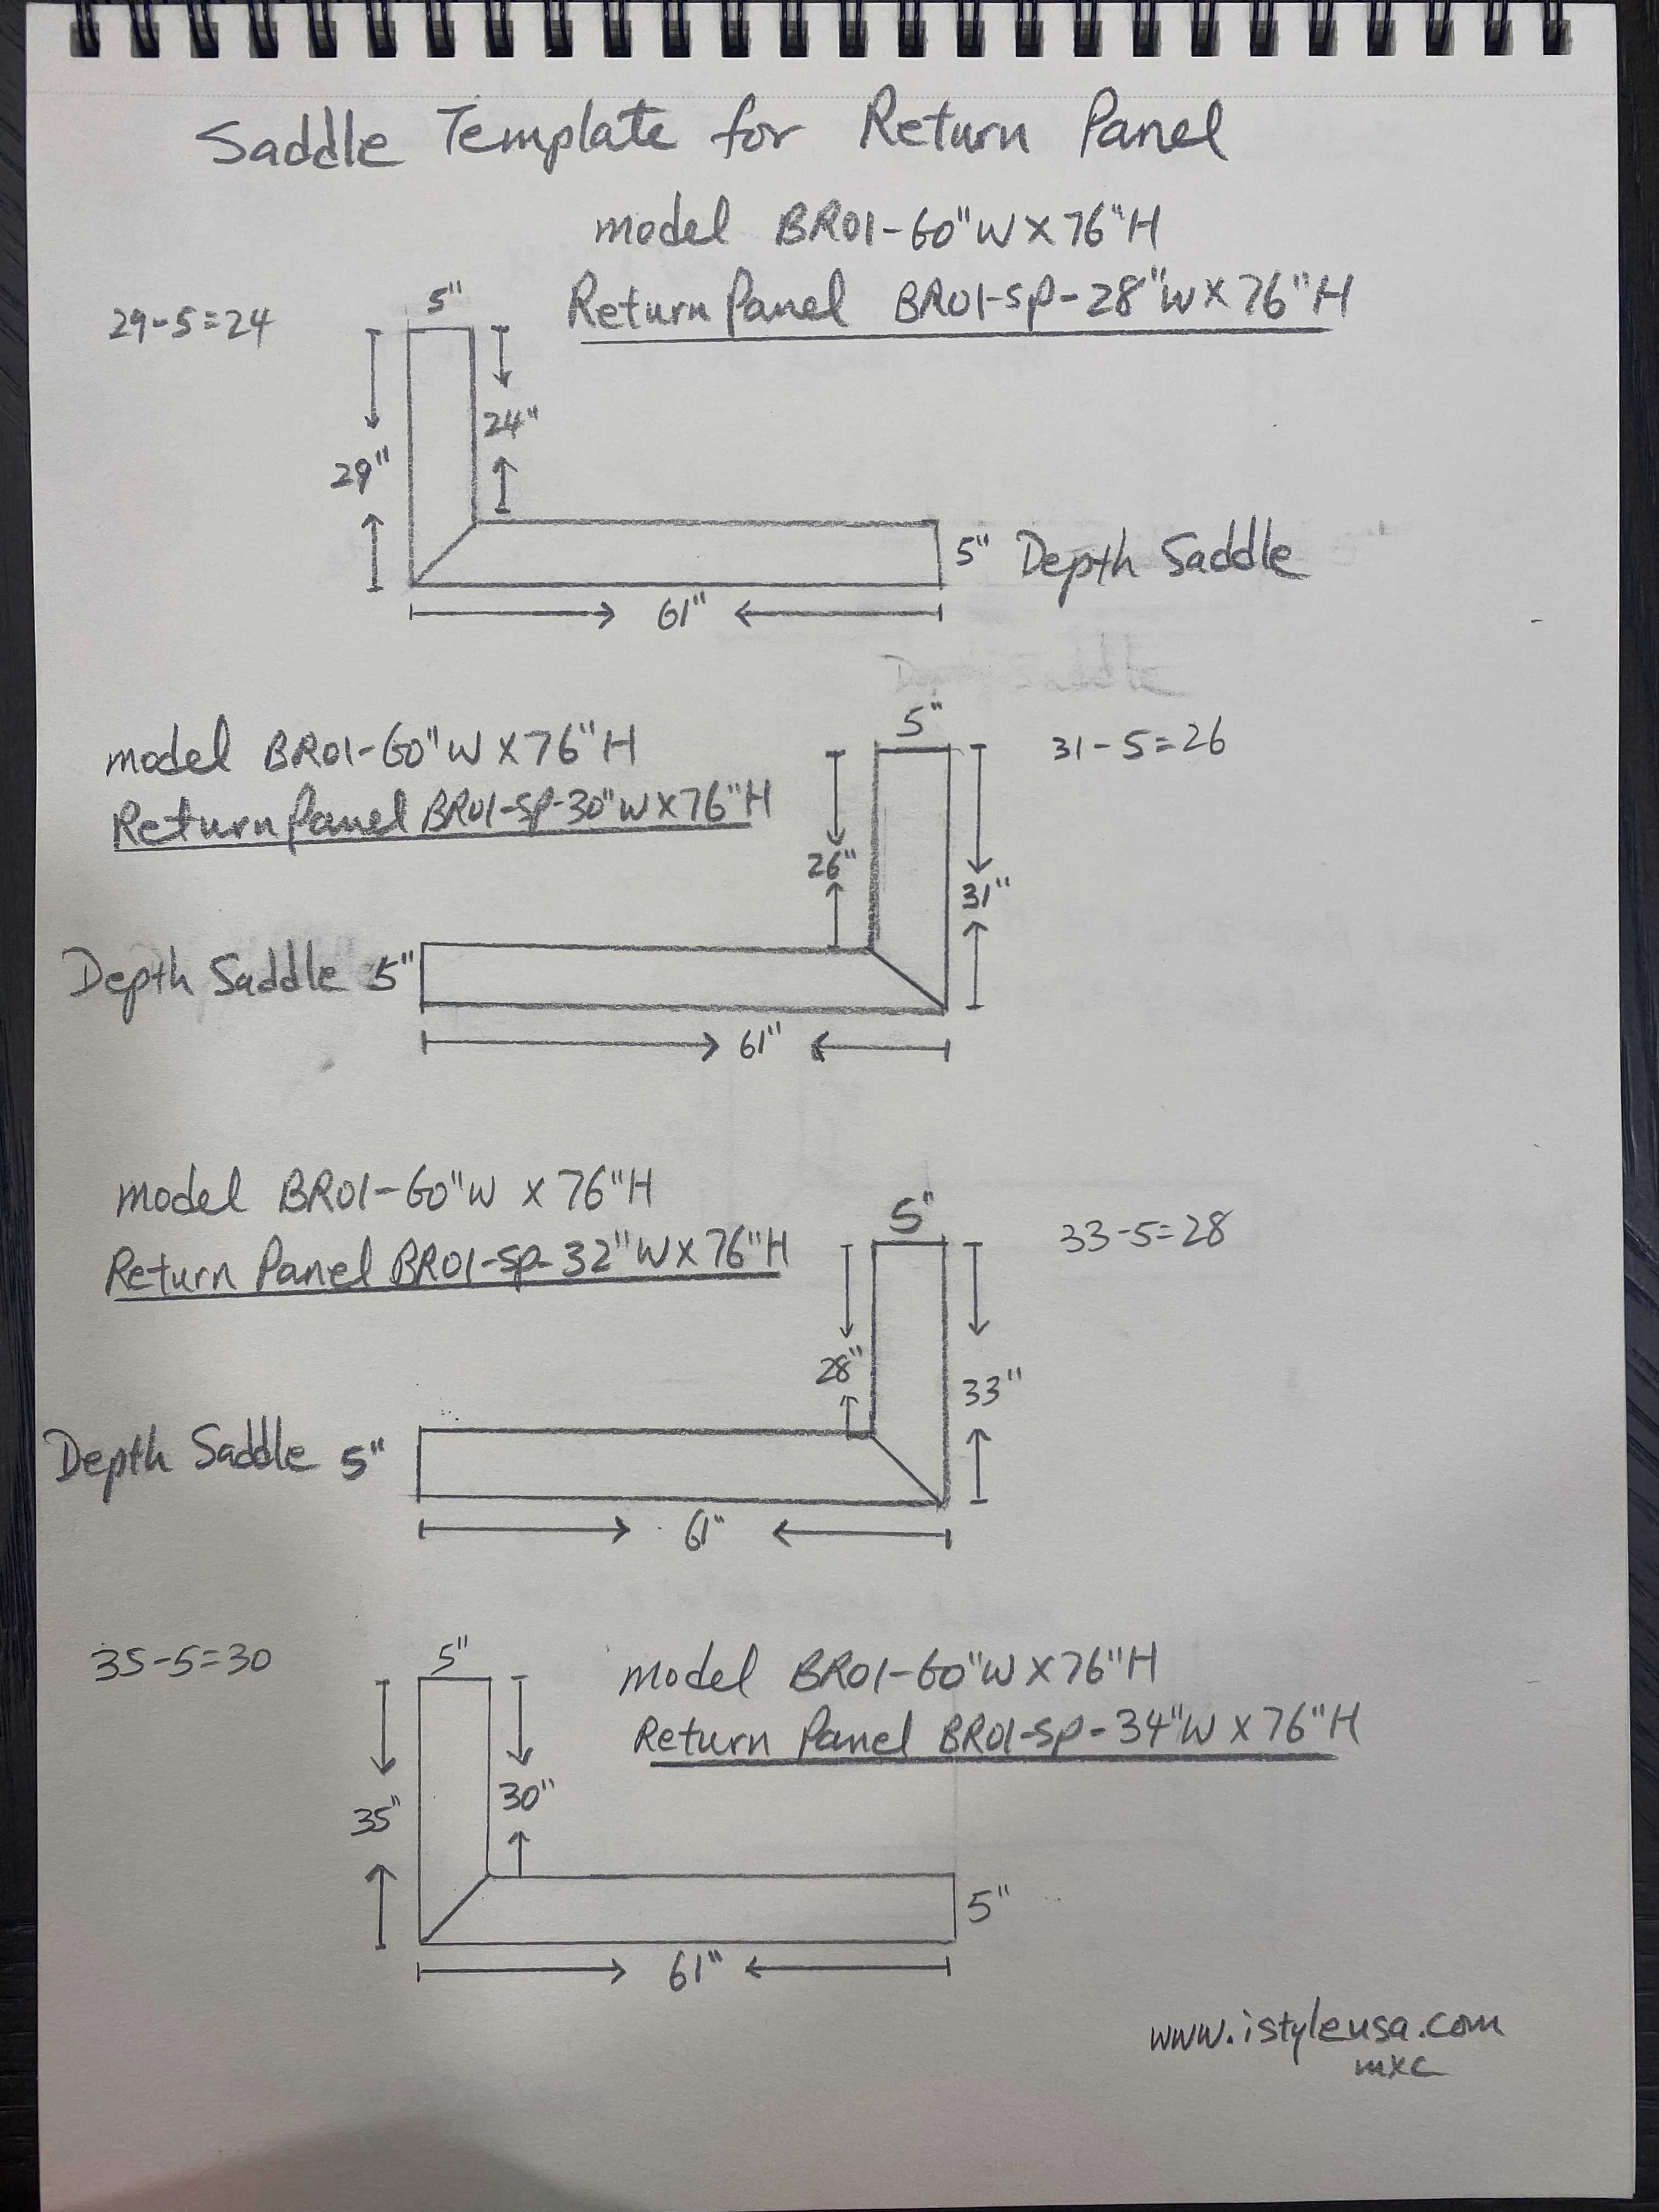 Saddle Template for Return Panel
model BR01-60"W X 76"H
Return Panel BR01-SP-28"W X 76"H
29-5=24
5"
24"
29"
5" Depth Saddle
61"
model BR01-60"W X 76"H
Return Panel BR01-SP-30"W X 76"H
5"
31-5=26
26"
31"
Depth Saddle 5"
61"
model BR01-60"W X 76"H
Return Panel BR01-SP-32"W X 76"H
5"
33-5=28
28"
33"
Depth Saddle 5"
61"
35-5=30
5"
model BR01-60"W X 76"H
Return Panel BR01-SP-34"W X 76"H
30"
35"
5"
61"
www.istyleusa.com
mxc